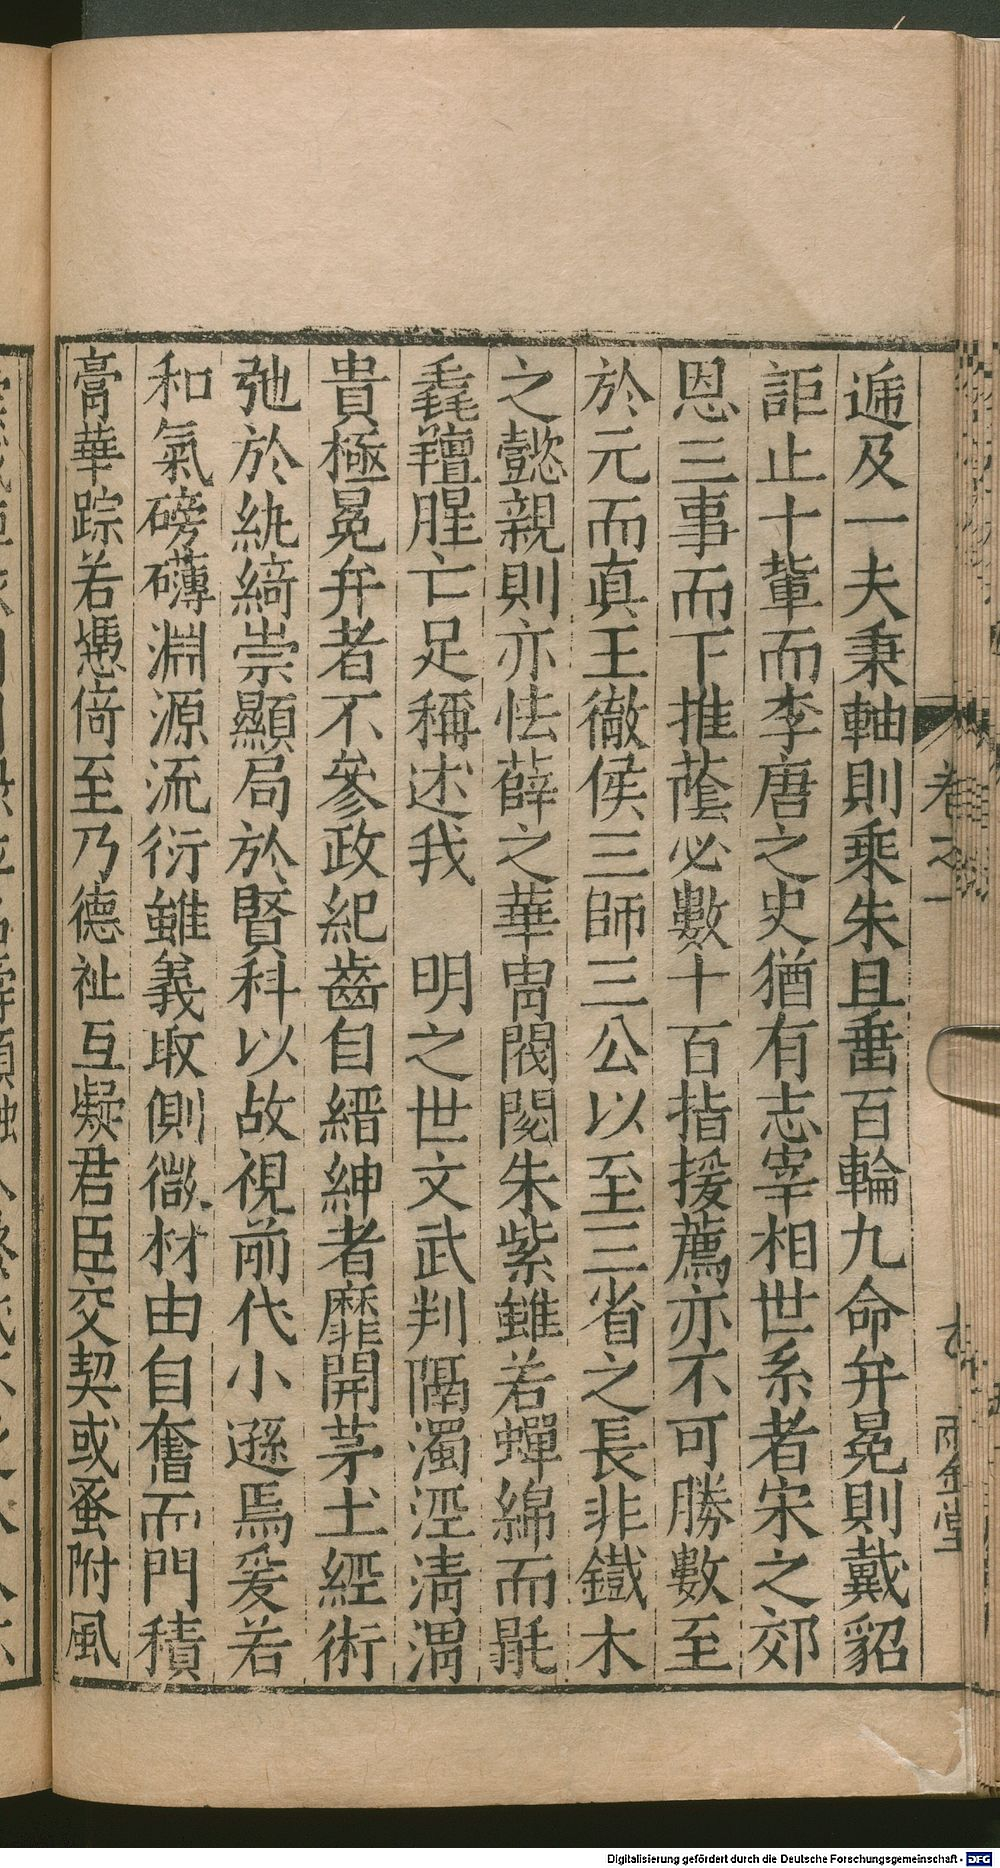 遞及一夫秉軸則乘朱且畨百輪九命弁冕則戴貂
詎止十軰而李唐之史猶有志宰相世系者宋之郊
恩三事而下推蔭必數十百指援薦亦不可勝數至
於元而真王徹侯三師三公以至三省之長非鐵木
之懿親則亦怯薛之華冑閥閱朱紫雖若蟬綿而毷
毳羶腥亡足稱述我　明之世文武判隔濁涇清渭
貴極冕弁者不參政紀齒自縉紳者靡開茅土經術
弛於紈綺崇顯局於賢科以故視前代小遜焉爰若
和氣磅礴淵源流衍雖義取側微材由自奮而門積
膏華踪若慿倚至乃德祉互凝君臣交契或蚤附風
卷之一
雨金堂
Digitalisierung gefördert durch die Deutsche Forschungsgemeinschaft - DFG